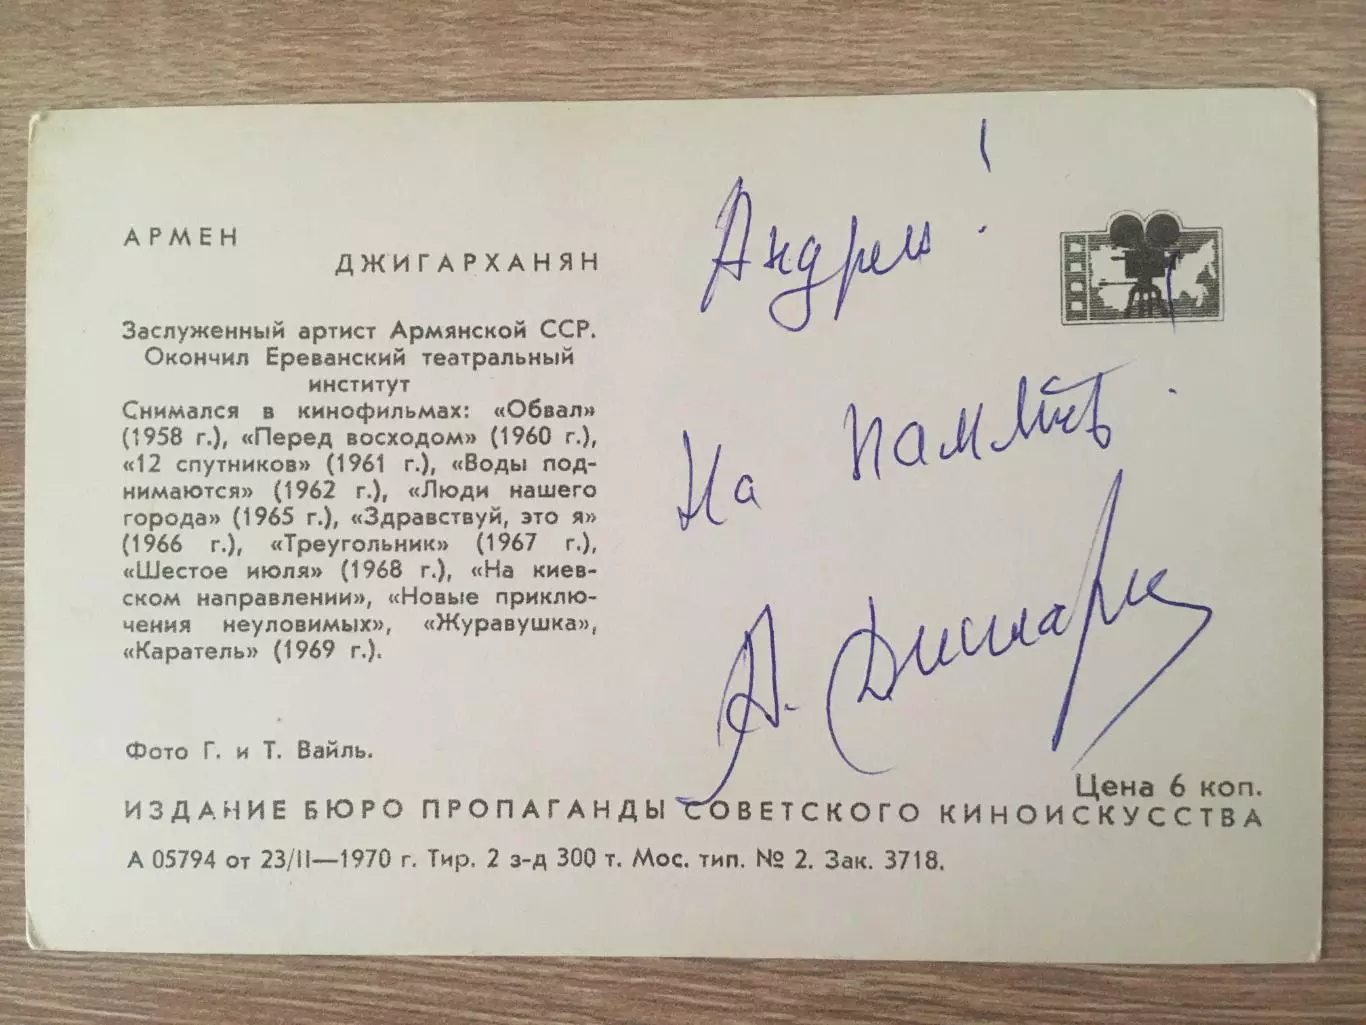 АРМЕН
ДЖИГАРХАНЯН
Заслуженный артист Армянской ССР.
Окончил Ереванский театральный
институт
Снимался в кинофильмах: «Обвал»
(1958 г.), «Перед восходом» (1960 г.),
«12 спутников» (1961 г.), «Воды под-
нимаются» (1962 г.), «Люди нашего
города» (1965 г.), «Здравствуй, это я»
(1966 г.), «Треугольник» (1967 г.),
«Шестое июля» (1968 г.), «На киев-
ском направлении», «Новые приклю-
чения неуловимых», «Журавушка»,
«Каратель» (1969 г.).
Фото Г. и Т. Вайль.
Андрей!
На память!
А.
Цена 6 коп.
ИЗДАНИЕ БЮРО ПРОПАГАНДЫ СОВЕТСКОГО КИНОИСКУССТВА
А 05794 от 23/II—1970 г. Тир. 2 з-д 300 т. Мос. тип. № 2. Зак. 3718.